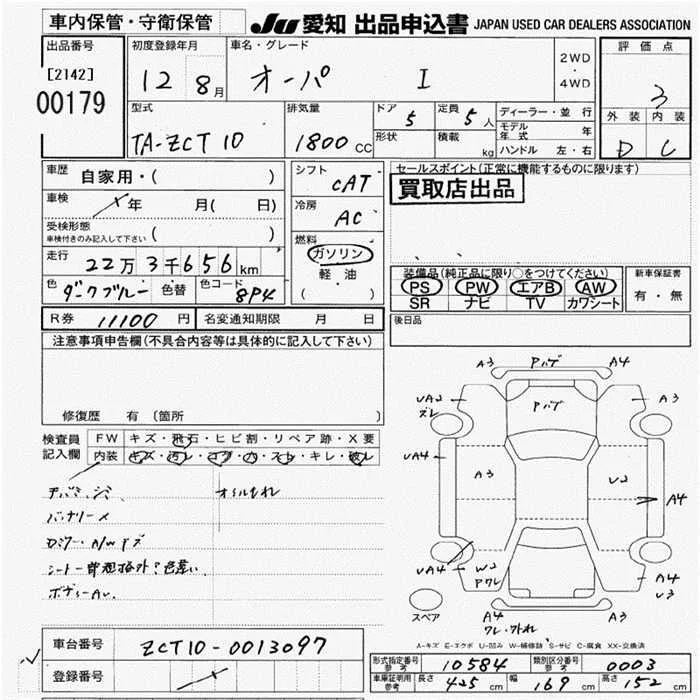 車内保管・守衛保管
JU 愛知 出品申込書 JAPAN USED CAR DEALERS ASSOCIATION
出品番号
[2142]
00179
初度登録年月
12 8月
車名・グレード
オーパ I
2WD
・
4WD
評価点
3
外装 内装
D C
型式
TA-ZCT10
排気量
1800 CC
ドア
5
定員
5人
形状
積載
kg
ディーラー・並行
モデル年式 年
ハンドル 左・右
車歴
自家用・( )
車検
年 月( 日)
受検形態
車検付きのみ記入して下さい ( )
走行
22万3千656km
色
ダークブルー
色替
色コード
8P4
シフト
CAT
冷房
AC
燃料
ガソリン
軽油
( )
セールスポイント(正常に機能するものに限ります)
買取店出品
装備品(純正品に限り○をつけてください)
PS PW エアB AW
SR ナビ TV カワシート
新車保証書
有・無
R券 11100円
名変通知期限 月 日
後日品
注意事項申告欄(不具合内容等は具体的に記入して下さい)
修復歴 有 (箇所
検査員
記入欄
FW キズ・飛石・ヒビ割・リペア跡・X要
内装 キズ・汚レ・コゲ・穴・スレ・キレ・破レ
オイルもれ
バッテリーメ
A3 Pハゲ A4
UA2
ズレ
Pハゲ
A3
UA4
A3
U2
A4
UA4
W2
Pワレ
A4
U3
スペア
A4
ワレ・外れ
A3
A-キズ E-エクボ U-凹み W-補修跡 S-サビ C-腐食 XX-交換済
車台番号 ZCT10-0013097
登録番号
形式指定番号
参考
10584
類別区分番号
参考
0003
車庫証明用
参考
長さ 425 cm 幅 169 cm 高さ 152 cm